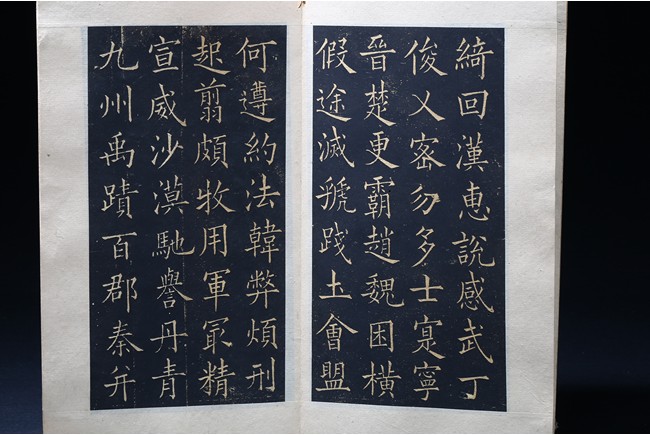 綺回漢惠說感武丁
俊乂密勿多士寔寧
晉楚更霸趙魏困橫
假途滅虢踐土會盟
何遵約法韓弊煩刑
起翦頗牧用軍冣精
宣威沙漠馳譽丹青
九州禹蹟百郡秦并